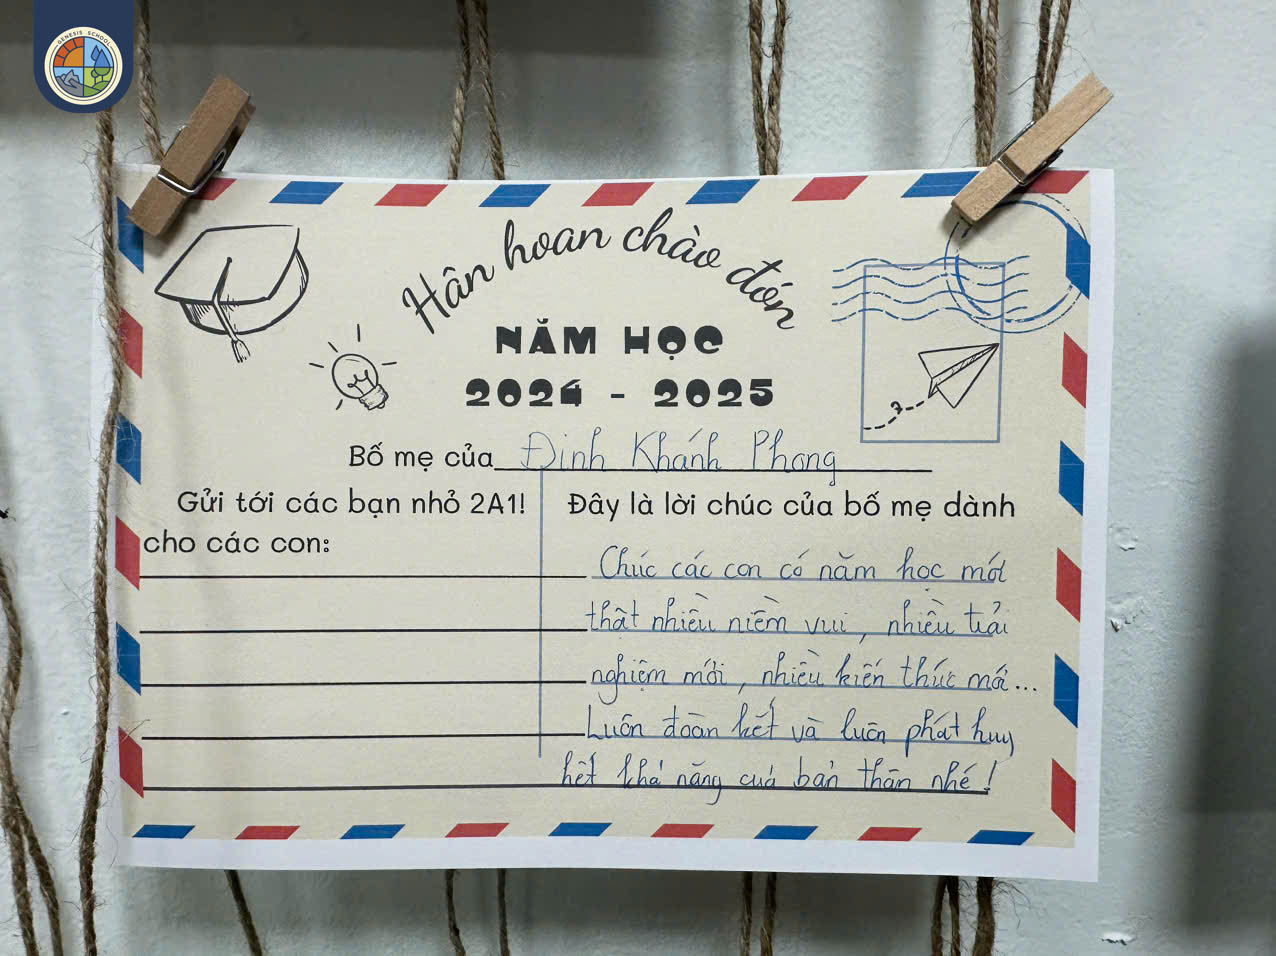 GENESIS SCHOOL
Hân hoan chào đón
NĂM HỌC
2024 - 2025
Bố mẹ của Đinh Khánh Phong
Gửi tới các bạn nhỏ 2A1! Đây là lời chúc của bố mẹ dành
cho các con:
Chúc các con có năm học mới
thật nhiều niềm vui, nhiều trải
nghiệm mới, nhiều kiến thức mới...
Luôn đoàn kết và luôn phát huy
hết khả năng của bản thân nhé!